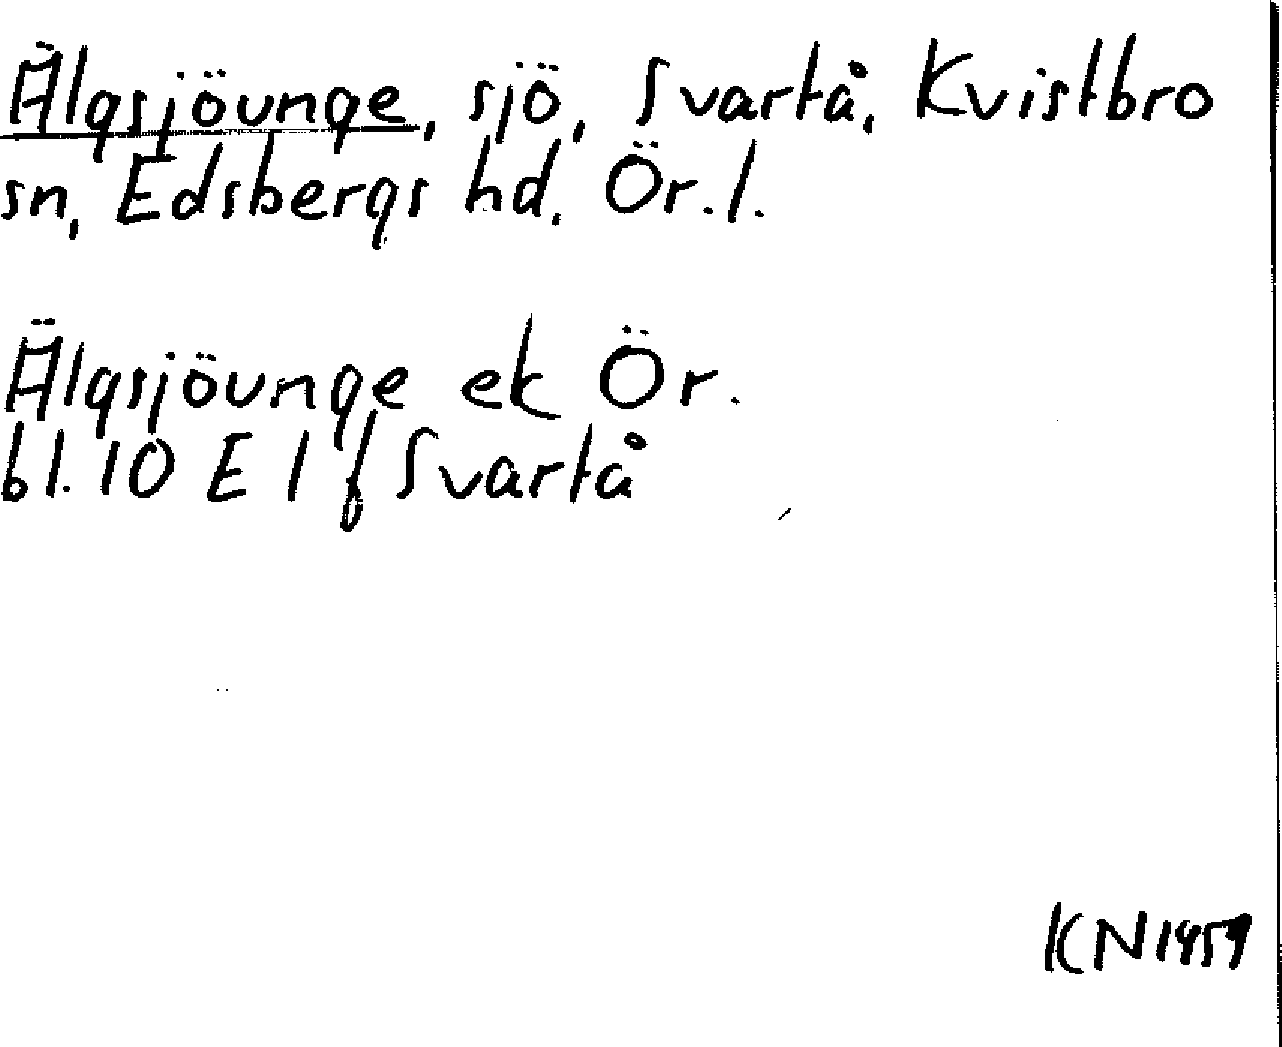 Älgsjöunge, sjö, Svartå, Kvistbro
sn, Edsbergs hd, Ör. l.
Älgsjöunge ek Ör.
bl. 10 E 1 f Svartå
KN 1959